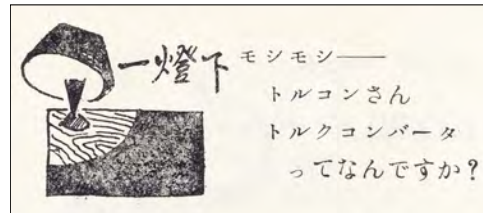 一燈下
モシモシ——
トルコンさん
トルクコンバータ
ってなんですか?